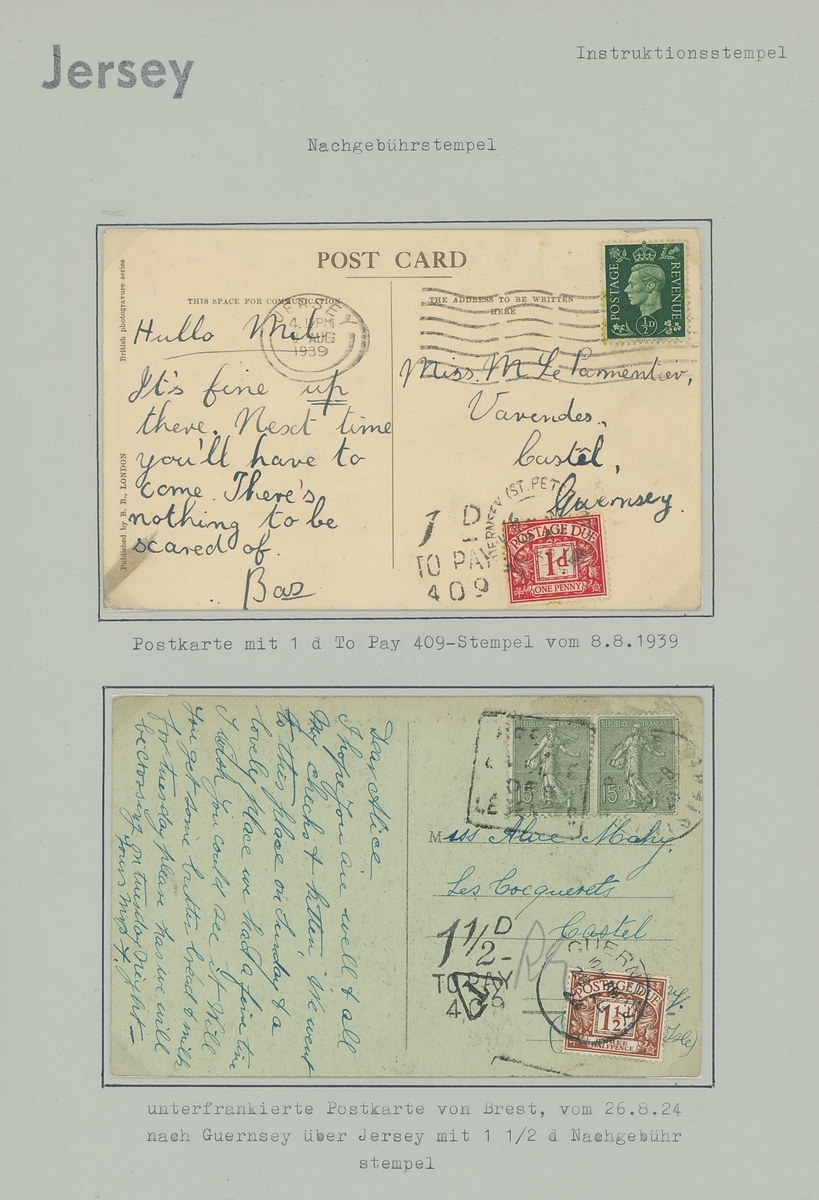 Jersey
Instruktionsstempel
Nachgebührstempel
POST CARD
THIS SPACE FOR COMMUNICATION
THE ADDRESS TO BE WRITTEN
HERE
British photogravure series
Published by B. B., LONDON
JERSEY
AUG
1939
POSTAGE
REVENUE
½D
Hullo Mil
It's fine up
there. Next time
you'll have to
come. There's
nothing to be
scared of.
Bas
Miss. M. Le Parmentier,
Varendes,
Castel,
Guernsey.
1 D
TO PAY
409
(ST. PET
POSTAGE DUE
1d
ONE PENNY
Postkarte mit 1 d To Pay 409-Stempel vom 8.8.1939
REPUBLIQUE FRANÇAISE
15c
REPUBLIQUE FRANÇAISE
15c
Dear Alice
I hope you are well & all
my chicks & kitten, we went
to this place on Sunday & a
lovely place we had a fine time
I wish you could see it Will
you get some butter bread & milk
for tuesday please has we will
be crossing on tuesday night
Yours
Miss Alice Mahy
Les Cocquerets
Castel
1 1/2 D
TO PAY
409
T
GUERN
POSTAGE DUE
1½d
Isle)
unterfrankierte Postkarte von Brest, vom 26.8.24
nach Guernsey über Jersey mit 1 1/2 d Nachgebühr
stempel